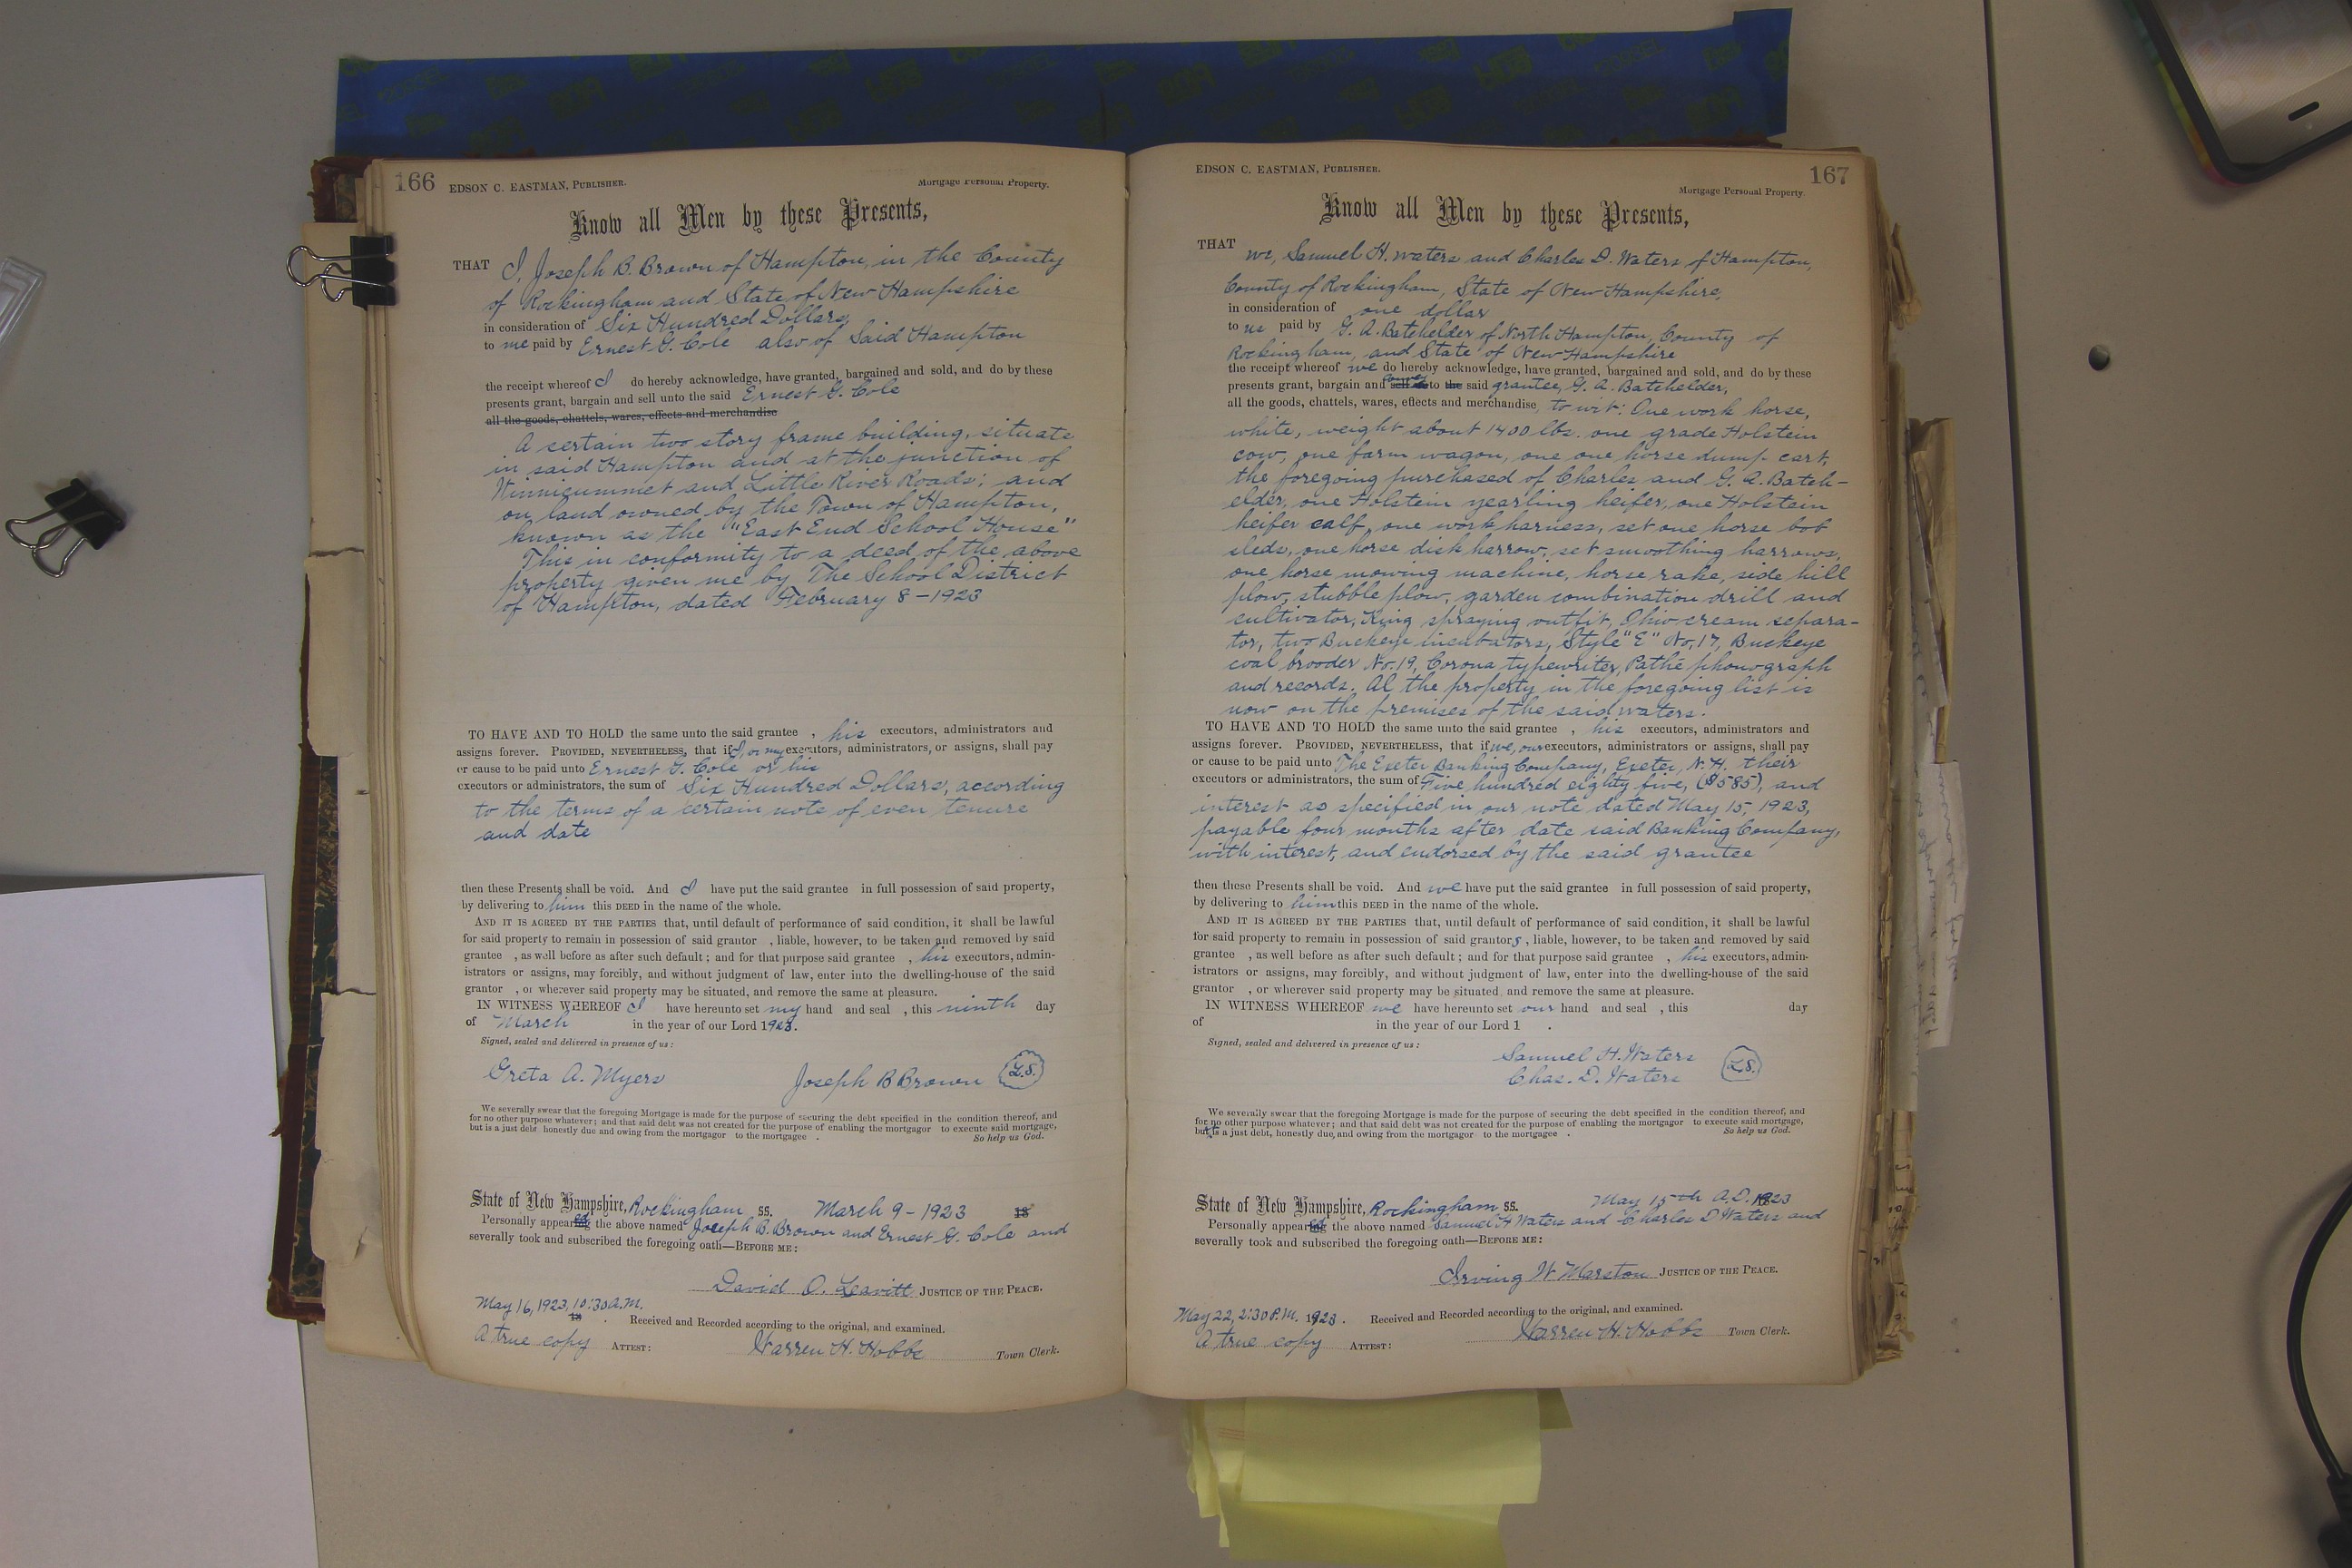 166 EDSON C. EASTMAN, PUBLISHER. Mortgage Personal Property.
Know all Men by these Presents,
THAT I, Joseph B. Brown of Hampton, in the County
of Rockingham and State of New Hampshire
in consideration of Six Hundred Dollars,
to me paid by Ernest G. Cole also of Said Hampton
the receipt whereof I do hereby acknowledge, have granted, bargained and sold, and do by these
presents grant, bargain and sell unto the said Ernest G. Cole
all the goods, chattels, wares, effects and merchandise
A certain two story frame building, situate
in said Hampton and at the junction of
Winnicummet and Little River Roads; and
on land owned by the Town of Hampton,
known as the "East End School House"
This in conformity to a deed of the above
property given me by The School District
of Hampton, dated February 8-1923
TO HAVE AND TO HOLD the same unto the said grantee , his executors, administrators and
assigns forever. PROVIDED, NEVERTHELESS, that if I, or my executors, administrators, or assigns, shall pay
or cause to be paid unto Ernest G. Cole or his
executors or administrators, the sum of Six Hundred Dollars, according
to the terms of a certain note of even tenure
and date
then these Presents shall be void. And I have put the said grantee in full possession of said property,
by delivering to him this DEED in the name of the whole.
AND IT IS AGREED BY THE PARTIES that, until default of performance of said condition, it shall be lawful
for said property to remain in possession of said grantor , liable, however, to be taken and removed by said
grantee , as well before as after such default ; and for that purpose said grantee , his executors, admin-
istrators or assigns, may forcibly, and without judgment of law, enter into the dwelling-house of the said
grantor , or wherever said property may be situated, and remove the same at pleasure.
IN WITNESS WHEREOF I have hereunto set my hand and seal , this ninth day
of March in the year of our Lord 1923.
Signed, sealed and delivered in presence of us :
Greta A. Myers Joseph B Brown L.S.
We severally swear that the foregoing Mortgage is made for the purpose of securing the debt specified in the condition thereof, and
for no other purpose whatever ; and that said debt was not created for the purpose of enabling the mortgagor to execute said mortgage,
but is a just debt, honestly due and owing from the mortgagor to the mortgagee . So help us God.
State of New Hampshire, Rockingham ss. March 9-1923 18
Personally appeared the above named Joseph B. Brown and Ernest G. Cole and
severally took and subscribed the foregoing oath—BEFORE ME :
David O. Leavitt JUSTICE OF THE PEACE.
May 16, 1923, 10:30 A.M.
18 . Received and Recorded according to the original, and examined.
A true copy ATTEST: Warren H. Hobbs Town Clerk.
EDSON C. EASTMAN, PUBLISHER. 167
Mortgage Personal Property.
Know all Men by these Presents,
THAT we, Samuel H. waters and Charles D. Waters of Hampton,
County of Rockingham, State of New Hampshire,
in consideration of one dollar
to us paid by G. A. Batchelder of North Hampton, County of
Rockingham, and State of New Hampshire
the receipt whereof we do hereby acknowledge, have granted, bargained and sold, and do by these
presents grant, bargain and convey to the said grantee, G. A. Batchelder,
all the goods, chattels, wares, effects and merchandise, to wit: One work horse,
white, weight about 1400 lbs. one grade Holstein
cow, one farm wagon, one one horse dump cart,
the foregoing purchased of Charles and G. A. Batch-
elder, one Holstein yearling heifer, one Holstein
heifer calf, one work harness, set one horse bob
sleds, one horse disk harrow, set smoothing harrows,
one horse mowing machine, horse rake, side hill
plow, stubble plow, garden combination drill and
cultivator, King spraying outfit, Ohio cream separa-
tor, two Buckeye incubators, Style "E" No. 17, Buckeye
coal brooder No. 19, Corona typewriter, Pathe phonograph
and records. Al the property in the foregoing list is
now on the premises of the said waters.
TO HAVE AND TO HOLD the same unto the said grantee , his executors, administrators and
assigns forever. PROVIDED, NEVERTHELESS, that if we, our executors, administrators or assigns, shall pay
or cause to be paid unto The Exeter Banking Company, Exeter, N.H. their
executors or administrators, the sum of Five hundred eighty five, ($585), and
interest as specified in our note dated May 15, 1923,
payable four months after date said Banking Company,
with interest, and endorsed by the said grantee
then these Presents shall be void. And we have put the said grantee in full possession of said property,
by delivering to him this DEED in the name of the whole.
AND IT IS AGREED BY THE PARTIES that, until default of performance of said condition, it shall be lawful
for said property to remain in possession of said grantors , liable, however, to be taken and removed by said
grantee , as well before as after such default ; and for that purpose said grantee , his executors, admin-
istrators or assigns, may forcibly, and without judgment of law, enter into the dwelling-house of the said
grantor , or wherever said property may be situated, and remove the same at pleasure.
IN WITNESS WHEREOF we have hereunto set our hand and seal , this day
of in the year of our Lord 1 .
Signed, sealed and delivered in presence of us :
Samuel H. Waters
Chas. D. Waters L.S.
We severally swear that the foregoing Mortgage is made for the purpose of securing the debt specified in the condition thereof, and
for no other purpose whatever ; and that said debt was not created for the purpose of enabling the mortgagor to execute said mortgage,
but is a just debt, honestly due and owing from the mortgagor to the mortgagee . So help us God.
State of New Hampshire, Rockingham ss. May 15th A.D. 1923
Personally appeared the above named Samuel H Waters and Charles D Waters and
severally took and subscribed the foregoing oath—BEFORE ME :
Irving W Marston JUSTICE OF THE PEACE.
May 22, 2:30 P.M. 1923. Received and Recorded according to the original, and examined.
A true copy ATTEST: Warren H. Hobbs Town Clerk.